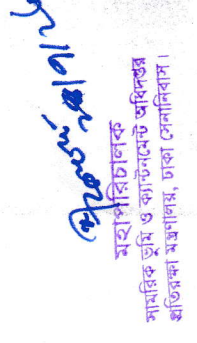 মহাপরিচালক
সামরিক ভূমি ও ক্যান্টনমেন্ট অধিদপ্তর
প্রতিরক্ষা মন্ত্রণালয়, ঢাকা সেনানিবাস।